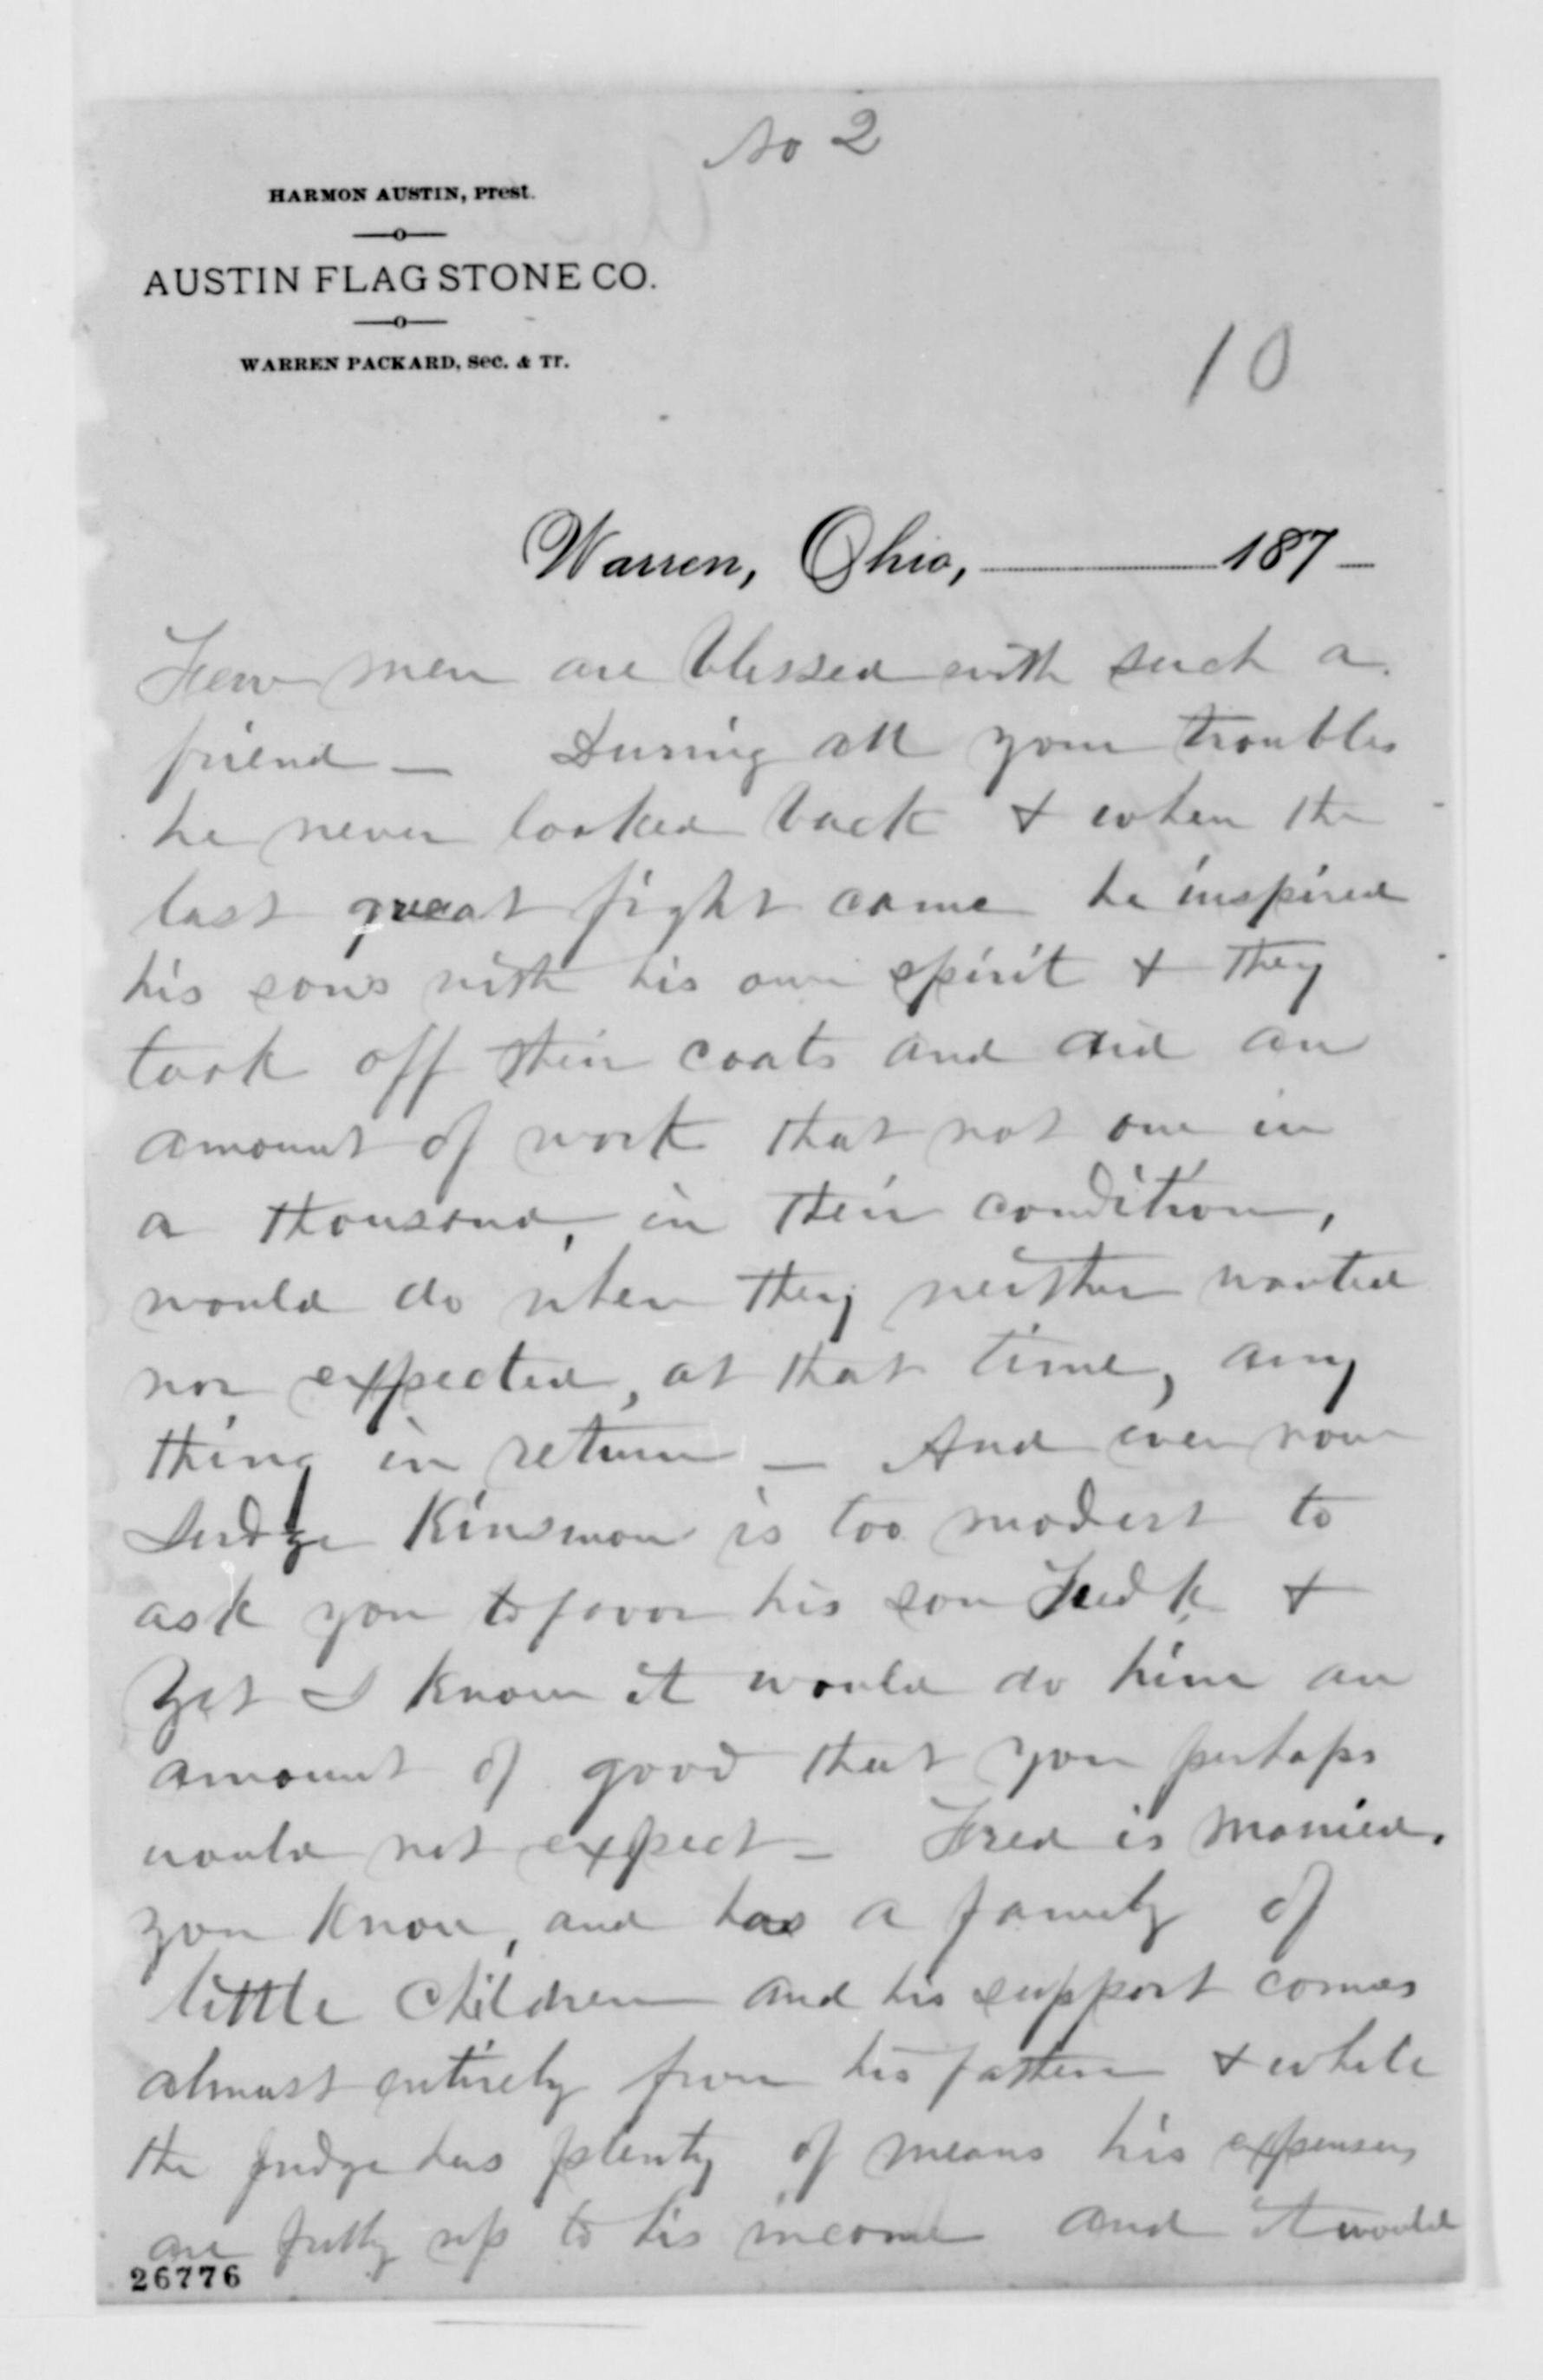 No 2
HARMON AUSTIN, Prest.
AUSTIN FLAG STONE CO.
WARREN PACKARD, Sec. & Tr.
10
Warren, Ohio, 187
Few men are blessed with such a
friend — During all your troubles
he never looked back & when the
last great fight came he inspired
his sons with his own spirit & they
took off their coats and did an
amount of work that not one in
a thousand, in their condition,
would do when they neither wanted
nor expected, at that time, any
thing in return — And even now
Judge Kinsman is too modest to
ask you to favor his son Fredk &
yet I know it would do him an
amount of good that you perhaps
would not expect — Fred is married,
you know, and has a family of
little children and his support comes
almost entirely from his father & while
the judge has plenty of means his expenses
are fully up to his income and it would
26776